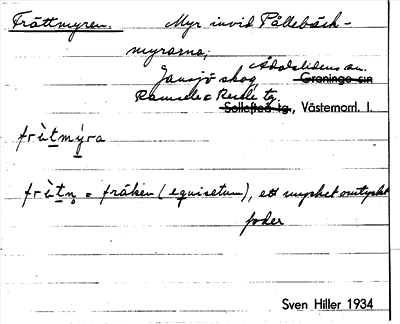 Frättmyren. Myr invid Pållebäck-
myrarna;
Jansjö skog Ådalslidens sn.
Graninge sn
Ramsele o Resele tg
Sollefteå tg., Västernorrl. l.
frìtmýra
frìtn̥ = fräken (equisetum), ett mycket omtyckt
foder
Sven Hiller 1934